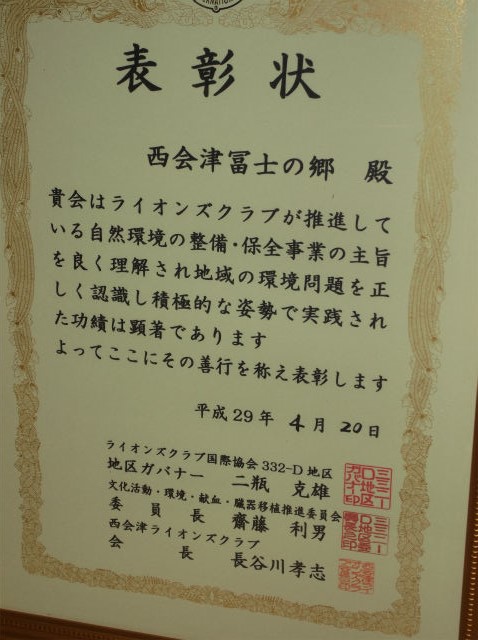 表彰状
西会津冨士の郷 殿
貴会はライオンズクラブが推進して
いる自然環境の整備・保全事業の主旨
を良く理解され地域の環境問題を正
しく認識し積極的な姿勢で実践され
た功績は顕著であります
よってここにその善行を称え表彰します
平成29年 4月 20日
ライオンズクラブ国際協会 332-D 地区
地区ガバナー 二瓶 克雄
文化活動・環境・献血・臓器移植推進委員会
委員長 齋藤 利男
西会津ライオンズクラブ
会長 長谷川孝志